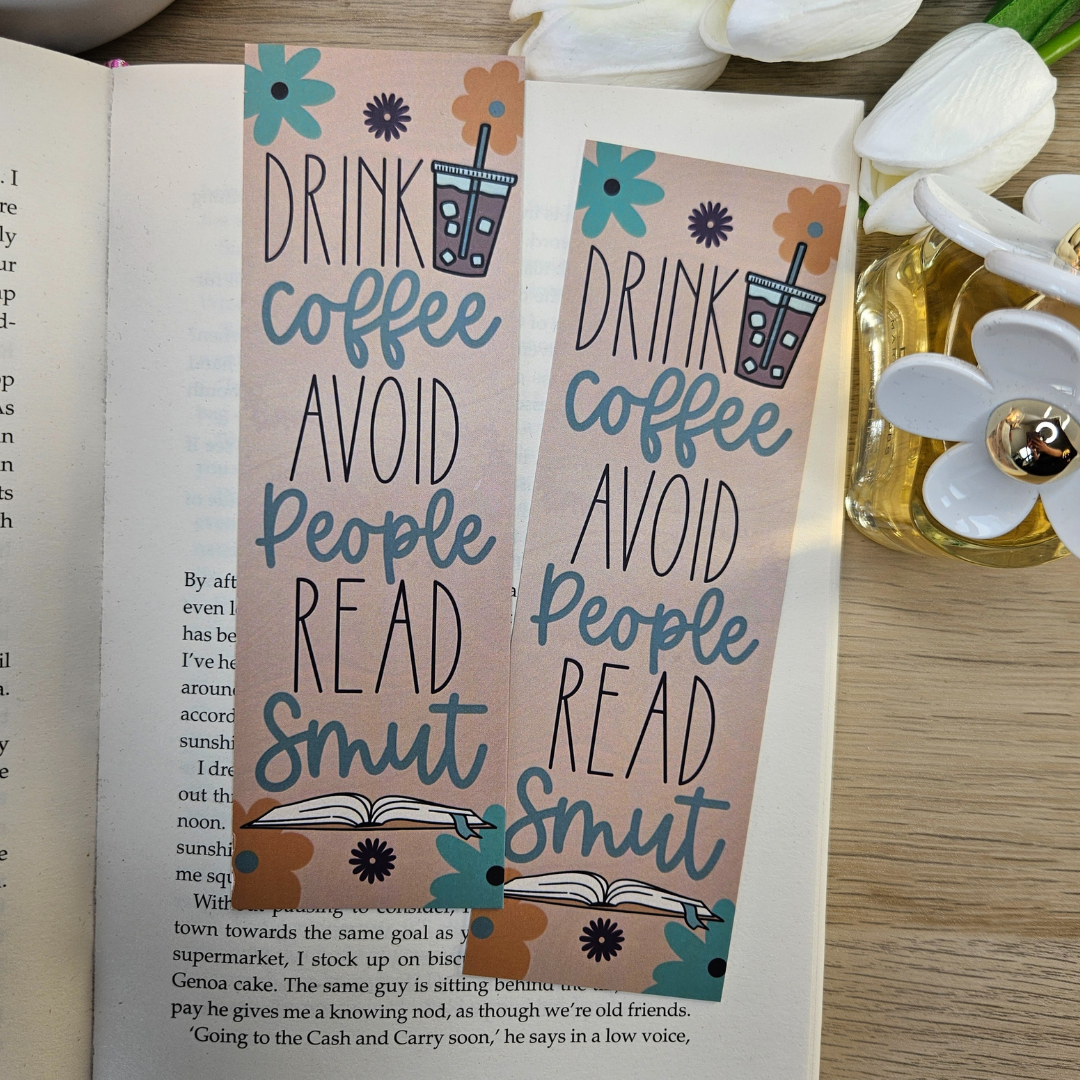 . I
re
ly
ur
up
d-
op
As
n
in
ts
h
il
a.
y
e
e
.
DRINK
coffee
AVOID
People
READ
Smut
DRINK
coffee
AVOID
People
READ
Smut
By aft
even l
has be
I've he
around
accord
sunshi
I dre
out thr
noon.
sunshi
me squ
Without pausing to consider, I
town towards the same goal as y
supermarket, I stock up on biscu
Genoa cake. The same guy is sitting behind the
pay he gives me a knowing nod, as though we're old friends.
'Going to the Cash and Carry soon,' he says in a low voice,